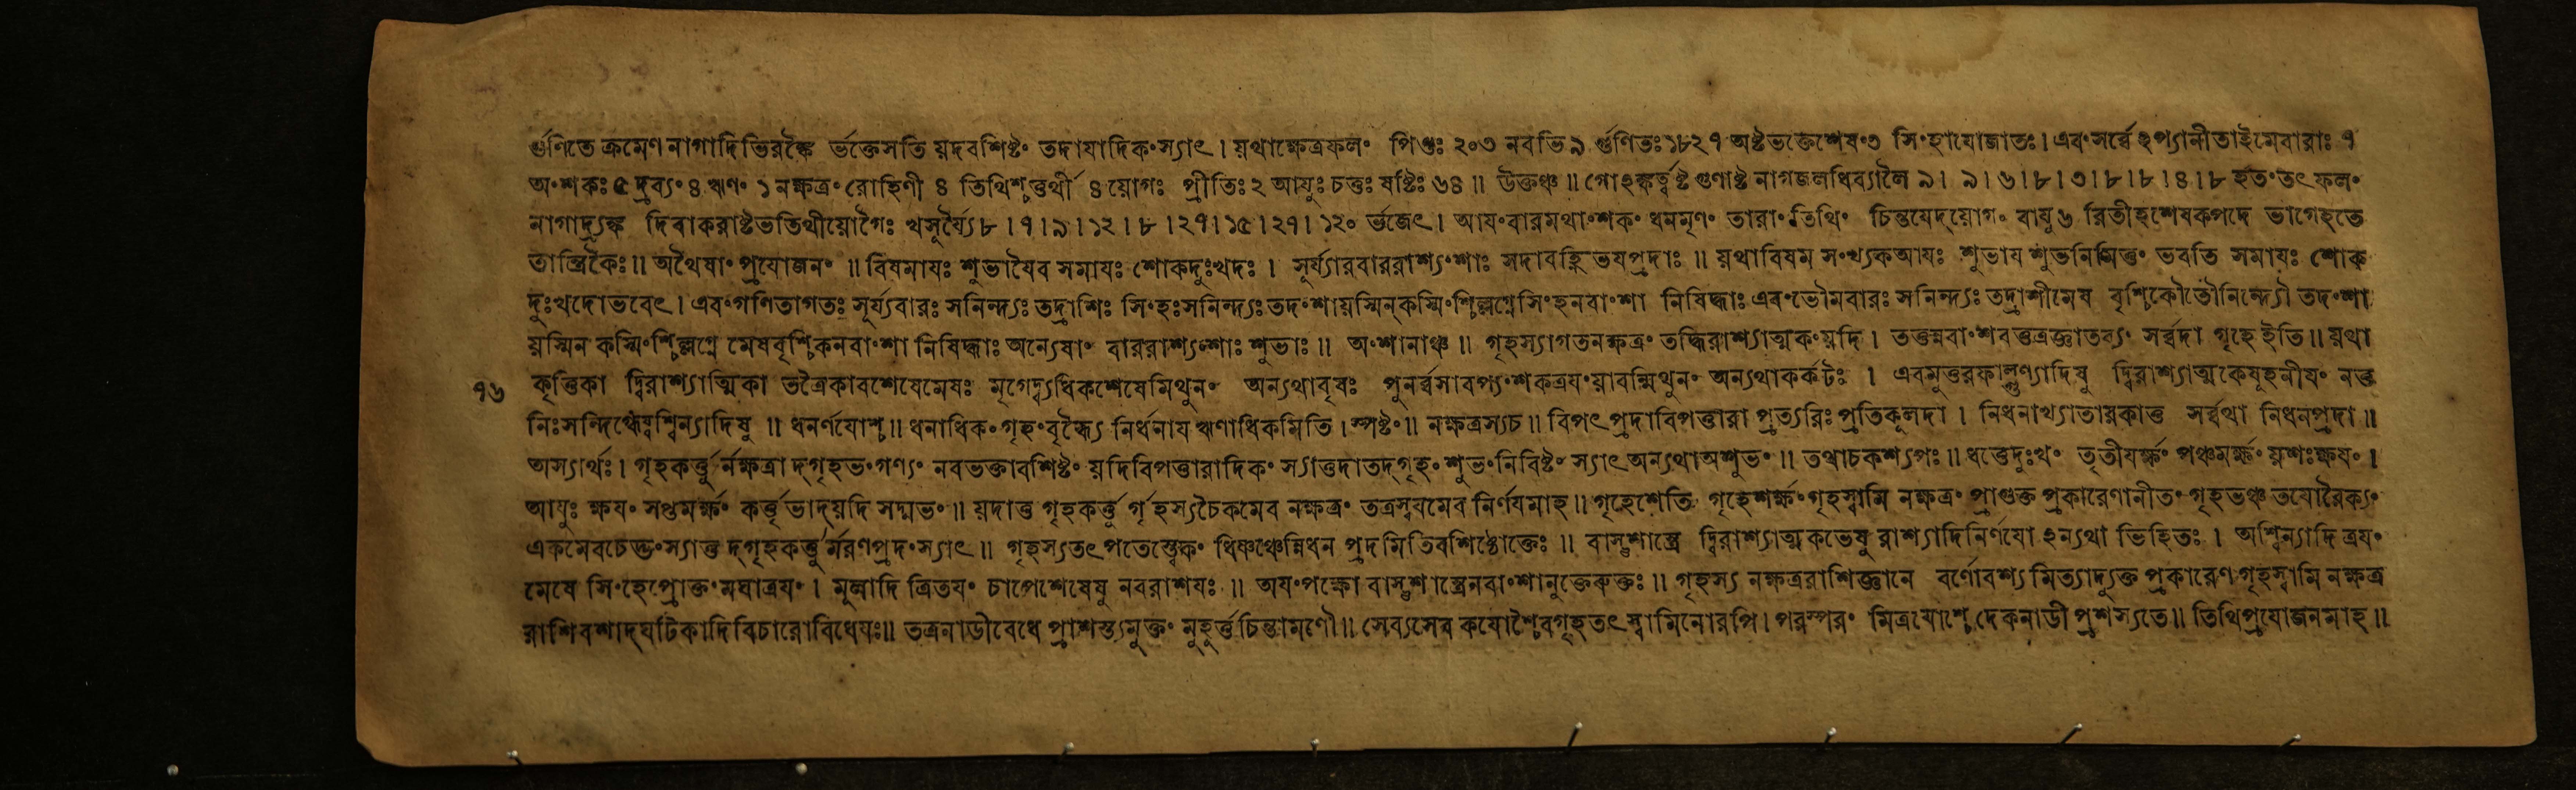 র্গুণিতে ক্রমেণ নাগাদিভিরঙ্কৈ র্ভক্তেসতি য়দবশিষ্ট॰ তদাযাদিক॰স্যাৎ। য়থাক্ষেত্রফল॰ পিণ্ডঃ ২০৩ নবভি ৯ র্গুণিতঃ ১৮২৭ অষ্টভক্তেশেষ॰৩ সি॰হাযোজাতঃ। এব॰সর্ব্বেঽপ্যানীতাইমেবারাঃ ৭
অ॰শকঃ ৫ দ্রব্য॰ ৪ ঋণ॰ ১ নক্ষত্র॰ রোহিণী ৪ তিথিশ্চতুর্থী ৪ য়োগঃ প্রীতিঃ ২ আযুঃ চতুঃ ষষ্টিঃ ৬৪ ॥ উক্তঞ্চ ॥ গোঽঙ্কর্ত্বষ্ট গুণাষ্ট নাগজলধিব্যালৈ ৯। ৯। ৬। ৮। ৩। ৮। ৮। ৪। ৮ র্হত॰তৎফল॰
নাগাদ্র্যঙ্ক দিবাকরাষ্টভতিথীয়োগৈঃ খসূর্য্যৈ ৮। ৭। ৯। ১২। ৮। ২৭। ১৫। ২৭। ১২০ র্ভজেৎ। আয॰বারমথা॰শক॰ ধনমৃণ॰ তারা॰তিথি॰ চিন্তযেদ্য়োগ॰ বাযু ৬ রিতীহশেষকপদে ভাগেহৃতে
তান্ত্রিকৈঃ॥ অথৈষা॰ প্রযোজন॰ ॥ বিষমাযঃ শুভাযৈব সমাযঃ শোকদুঃখদঃ। সূর্য্যারবাররাশ্য॰শাঃ সদাবহ্নিভযপ্রদাঃ ॥ য়থাবিষম স॰খ্যকআযঃ শুভায শুভনিমিত্ত॰ ভবতি সমাযঃ শোক
দুঃখদোভবেৎ। এব॰গণিতাগতঃ সূর্য্যবারঃ সনিন্দ্যঃ তদ্রাশিঃ সি॰হঃসনিন্দ্যঃ তদ॰শায়স্মিন্কস্মি॰শ্চিল্লগ্নেসি॰হনবা॰শা নিষিদ্ধাঃ এব॰ভৌমবারঃ সনিন্দ্যঃ তদ্রাশীমেষ বৃশ্চিকৌতৌনিন্দ্যৌ তদ॰শা
য়স্মিন কস্মি॰শ্চিল্লগ্নে মেষবৃশ্চিকনবা॰শা নিষিদ্ধাঃ অন্যেষা॰ বাররাশ্য॰শাঃ শুভাঃ ॥ অ॰শানাঞ্চ ॥ গৃহস্যাগতনক্ষত্র॰ তদ্দ্বিরাশ্যাত্মক॰য়দি। তত্তন্নবা॰শবত্তত্রজ্ঞাতব্য॰ সর্ব্বদা গৃহেইতি ॥ য়থা
৭৬ কৃত্তিকা দ্বিরাশ্যাত্মিকা তত্রৈকাবশেষেমেষঃ মৃগেদ্ব্যধিকশেষেমিথুন॰ অন্যথাবৃষঃ পুনর্ব্বসাবপ্য॰শকত্রয॰য়াবন্মিথুন॰ অন্যথাকর্কটঃ। এবমুত্তরফাল্গুণ্যাদিষু দ্বিরাশ্যাত্মকেষূহনীয॰ নত্ত
নিঃসন্দিগ্ধেষ্বশ্বিন্যাদিষু ॥ ধনর্ণযোশ্চ॥ ধনাধিক॰গৃহ॰বৃদ্ধ্যৈ নির্ধনায ঋণাধিকমিতি। স্পষ্ট॰॥ নক্ষত্রস্যচ॥ বিপৎপ্রদাবিপত্তারা প্রত্যরিঃ প্রতিকূলদা। নিধনাখ্যাতারকাত্ত সর্ব্বথা নিধনপ্রদা॥
অস্যার্থঃ। গৃহকর্ত্তুর্নক্ষত্রাদ্গৃহভ॰গণ্য॰ নবভক্তাবশিষ্ট॰ য়দিবিপত্তারাদিক॰ স্যাত্তদাতদ্গৃহ॰শুভ॰নিবিষ্ট॰ স্যাৎঅন্যথাঅশুভ॰ ॥ তথাচকশ্যপঃ॥ ধত্তেদুঃখ॰ তৃতীযর্ক্ষ॰ পঞ্চমর্ক্ষ॰ য়শঃক্ষয॰।
আযুঃ ক্ষয॰ সপ্তমর্ক্ষ॰ কর্ত্তৃভাদ্য়দি সদ্মভ॰॥ য়দাত্ত গৃহকর্ত্তুর্গৃহস্যচৈকমেব নক্ষত্র॰ তত্রস্বযমেব নির্ণযমাহ॥ গৃহেশেতি গৃহেশর্ক্ষ॰গৃহস্বামি নক্ষত্র॰ প্রাগুক্ত প্রকারেণানীত॰ গৃহভঞ্চ তযোরৈক্য॰
একমেবচেত্ত॰স্যাত্ত দ্গৃহকর্ত্তুর্মরণপ্রদ॰স্যাৎ॥ গৃহস্যতৎপতেস্ত্বেক॰ ধিষ্ণঞ্চেন্নিধন প্রদমিতিবশিষ্ঠোক্তেঃ ॥ বাস্তুশাস্ত্রে দ্বিরাশ্যাত্মকভেষু রাশ্যাদিনির্ণযো ঽন্যথা ভিহিতঃ। অশ্বিন্যাদি ত্রয॰
মেষে সি॰হেপ্রোক্ত॰মঘাত্রয॰। মূলাদি ত্রিতয॰ চাপেশেষেষু নবরাশযঃ ॥ অয॰পক্ষো বাস্তুশাস্ত্রেনবা॰শানুক্তেরুক্তঃ॥ গৃহস্য নক্ষত্ররাশিজ্ঞানে বর্ণোবশ্য মিত্যাদ্যুক্ত প্রকারেণ গৃহস্বামি নক্ষত্র
রাশিবশাদ্ঘটিকাদিবিচারোবিধেযঃ॥ তত্রনাডীবেধে প্রাশস্ত্যমুক্ত॰ মুহূর্ত্তচিন্তামণৌ॥ সেব্যসেব কযোশ্চৈবগৃহতৎস্বামিনোরপি। পরস্পর॰ মিত্রযোশ্চে দেকনাডী প্রশস্যতে॥ তিথিপ্রযোজনমাহ॥